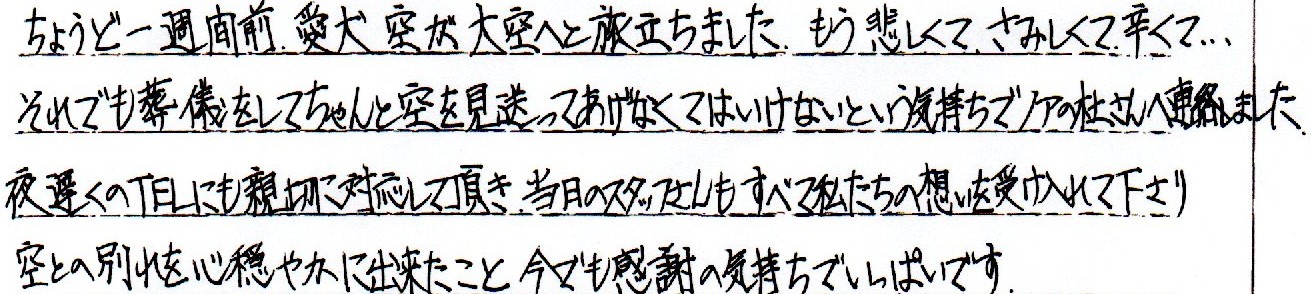 ちょうど一週間前、愛犬 空が 大空へと旅立ちました。もう悲しくて、さみしくて、辛くて…
それでも葬儀をしてちゃんと空を見送ってあげなくてはいけないという気持ちでノアの杜さんへ連絡しました。
夜遅くのTELにも親切に対応して頂き、当日のスタッフさんもすべて私たちの想いを受け入れて下さり
空との別れを心穏やかに出来たこと、今でも感謝の気持ちでいっぱいです。